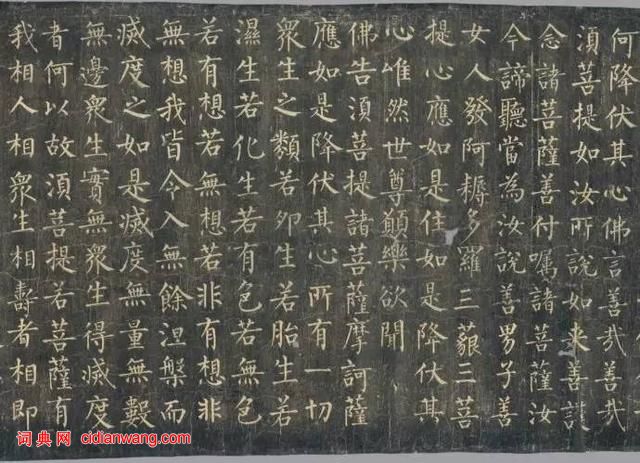 何降伏其心佛言善哉善哉
須菩提如汝所說如來善護
念諸菩薩善付囑諸菩薩汝
今諦聽當為汝說善男子善
女人發阿耨多羅三藐三菩
提心應如是住如是降伏其
心唯然世尊願樂欲聞
佛告須菩提諸菩薩摩訶薩
應如是降伏其心所有一切
衆生之類若卵生若胎生若
濕生若化生若有色若無色
若有想若無想若非有想非
無想我皆令入無餘涅槃而
滅度之如是滅度無量無數
無邊衆生實無衆生得滅度
者何以故須菩提若菩薩有
我相人相衆生相壽者相即
词典网 cidianwang.com